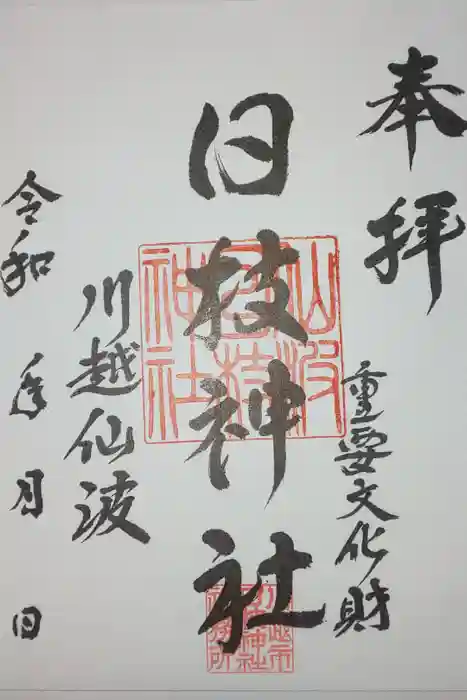 奉拝
重要文化財
日枝神社
川越仙波
令和 年 月 日
仙波
日枝
神社